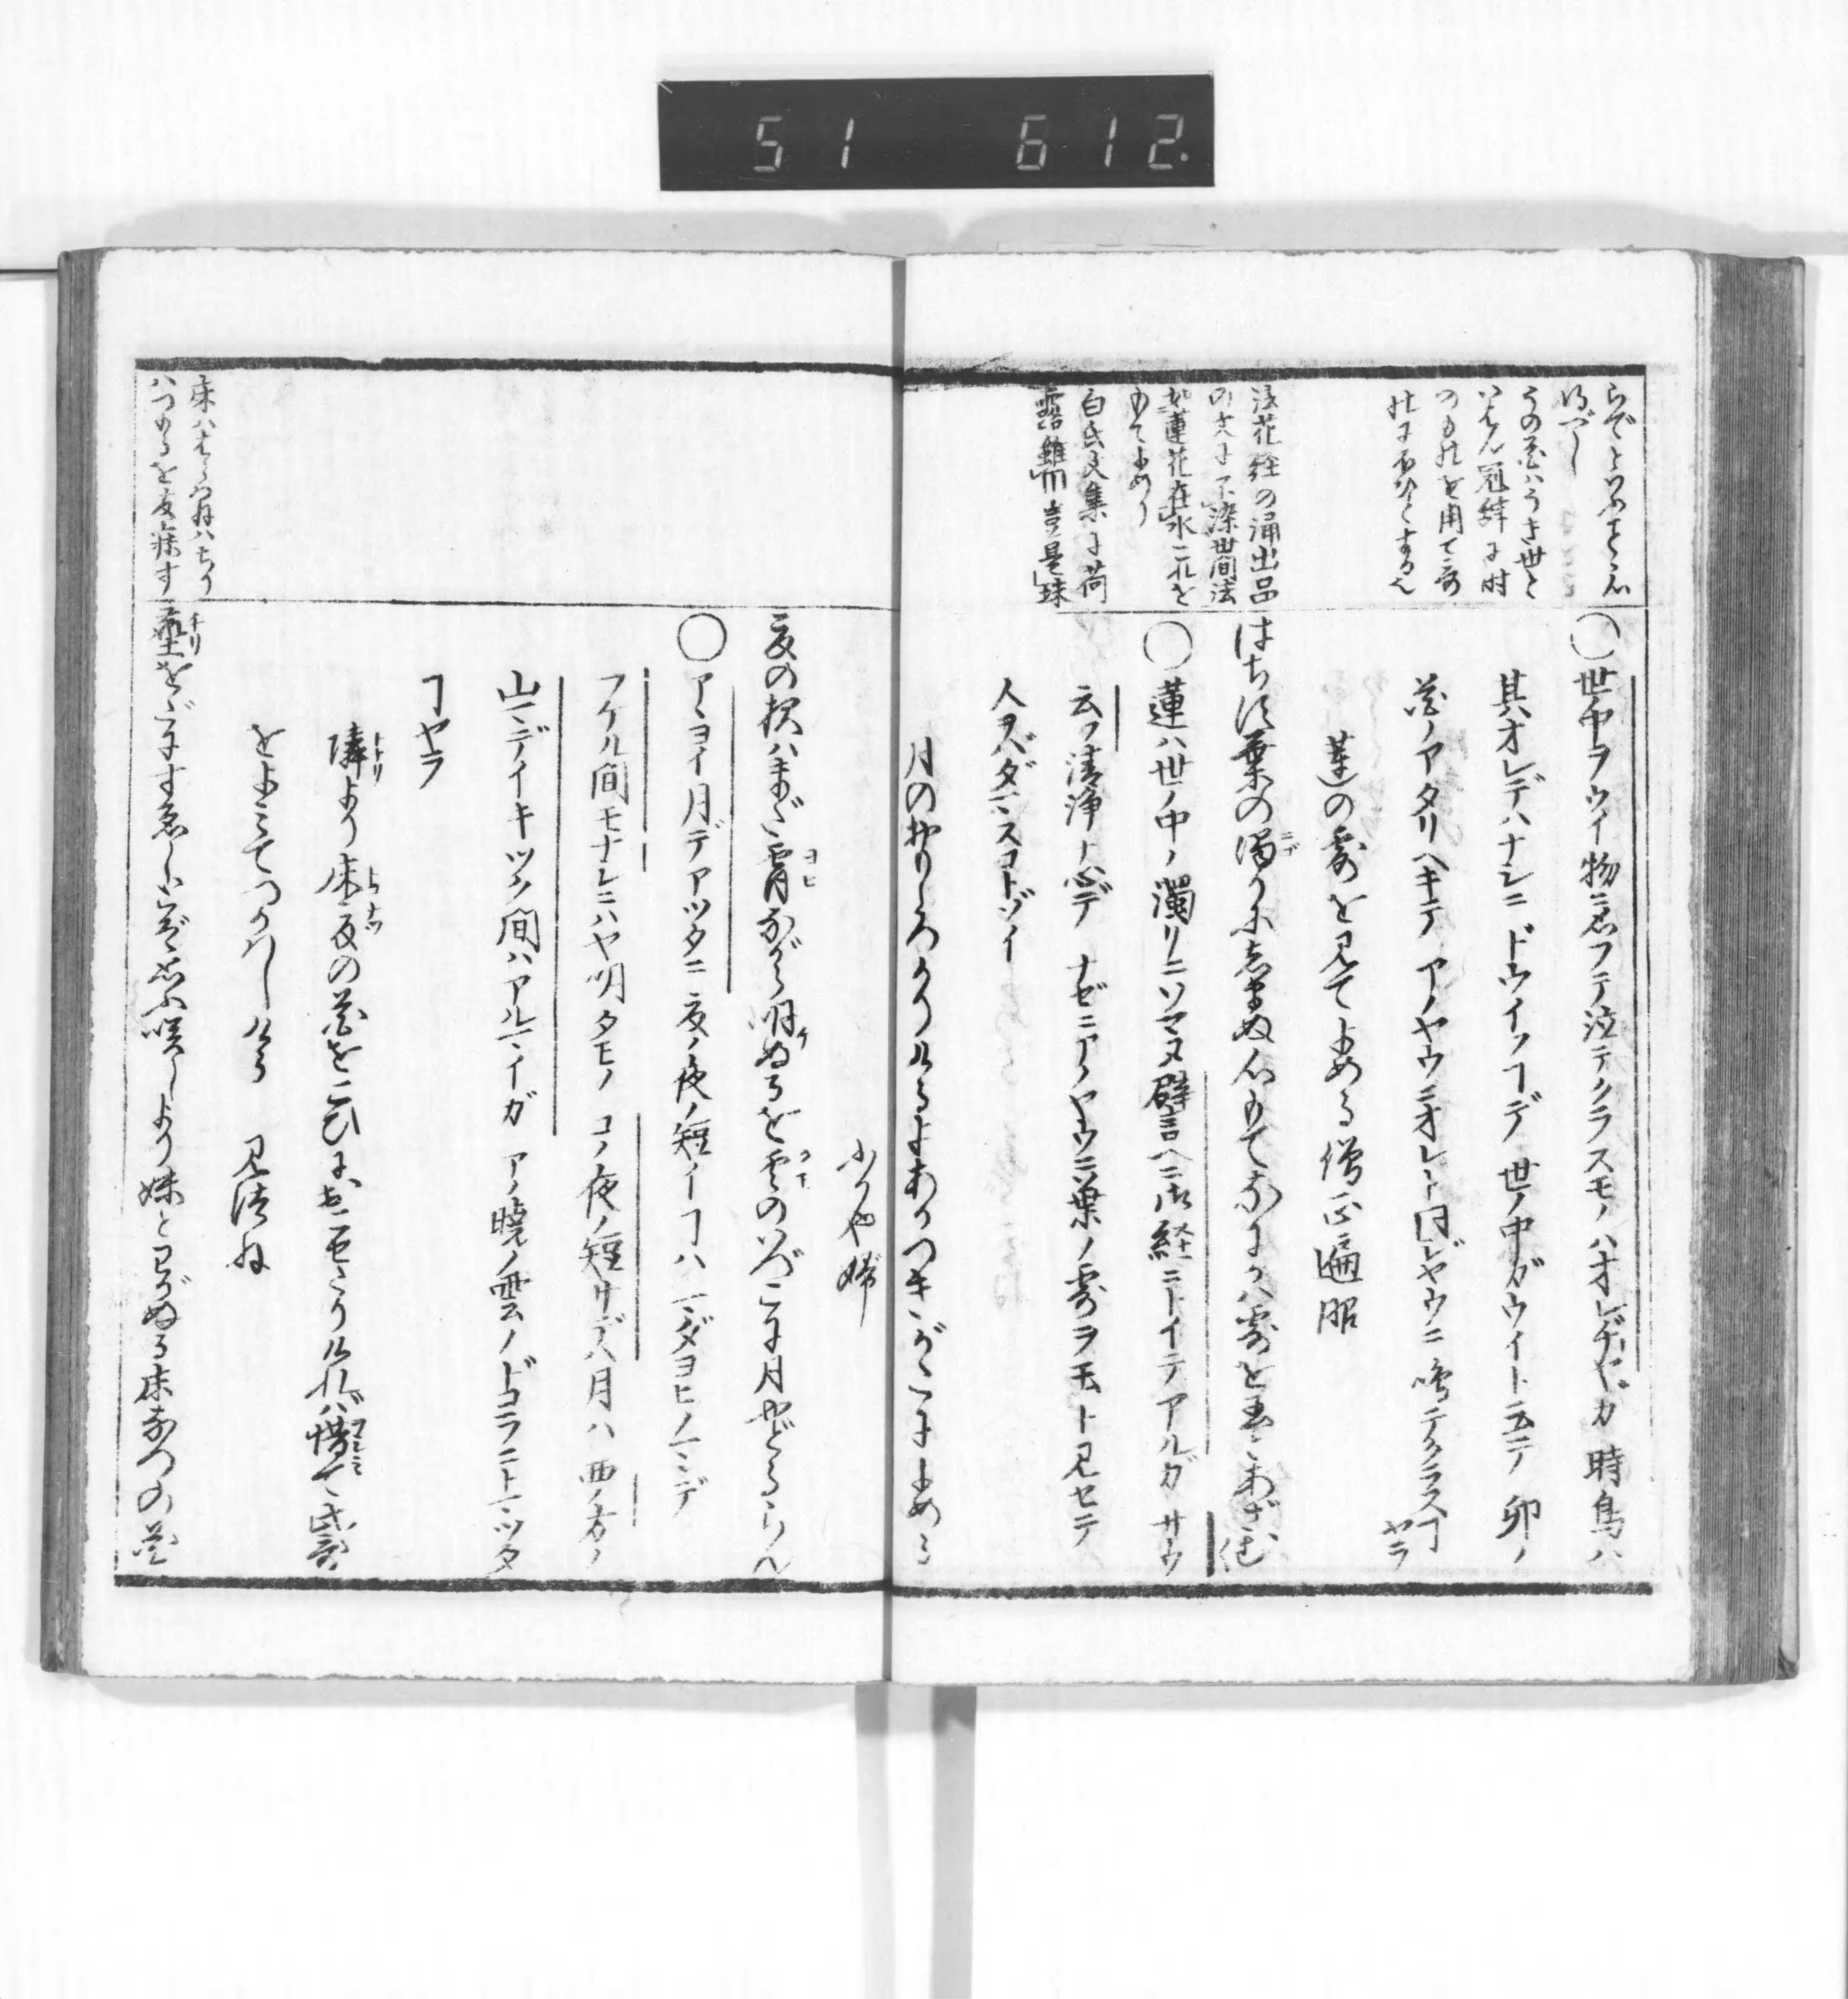 51 612.
らでといふ
うの花ハうき世と
いはん冠辞に時
のものを用て
法花経の涌出品
の文に不染世間法
如蓮花在水これを
もてよめり
白氏文集に荷
露雖団豈是珠
○世ノ中ヲウイ物ニ思フテ泣テクラスモノハオレヂヤガ 時鳥ハ
其オレデハナシニ ドウイフヿデ 世ノ中ガウイト云テ 卯ノ
花ノアタリヘキテ アノヤウニオレト同ジヤウニ 鳴テクラスヿヤラ
蓮の露を見てよめる 僧正遍昭
はちす葉の濁りにしまぬ心もてなにかハ露を玉とあざむく
○蓮ハ世ノ中ノ濁リニソマヌ譬ヘニ御経ニトイテアルガ サウ
云フ清浄ナ心デ ナゼニアノヤウニ葉ノ露ヲ玉ト見セテ
人ヲバダマスコトゾイ
月のおもしろかりける夜あかつきがたによめる
ふかやぶ
夏の夜ハまだ宵ながら明ぬるを雲のいづこに月やどるらん
○アヽヨイ月デアツタニ 夏ノ夜ノ短イヿハ マダヨヒノマヽデ
フケル間モナシニハヤ明タモノ コノ夜ノ短サデハ月ハ 西ノ方ノ
山マデイキツク間ハアルマイガ アノ暁ノ雲ノドコラニトマツタ
ヿヤラ
隣より床夏の花をこひにおこせたりければ惜て此哥
をよみてつかハしける 見つね
床ハはらハねハちり
ハつもるを夏床す
塵をだにすゑじとぞ思ふ咲しより妹とわがぬる床なつの花